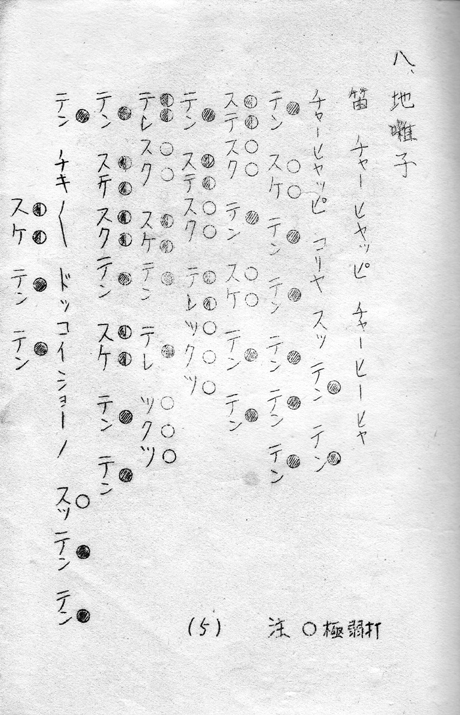 八、地囃子
笛 チャーヒャッピ チャーヒーヒャ
チャーヒャッピ コリャ スッ テン テン
テン スケ テン テン テン テン テン
ステスク テン スケ テン テン
テン ステスク テレツクツ
テレスク スケテン テレ ツクツ
テン スケスクテン スケ テン テン
テン チキ〳〵 ドッコイショーノ スッテン テン
スケ テン テン
注 ○極弱打
(5)